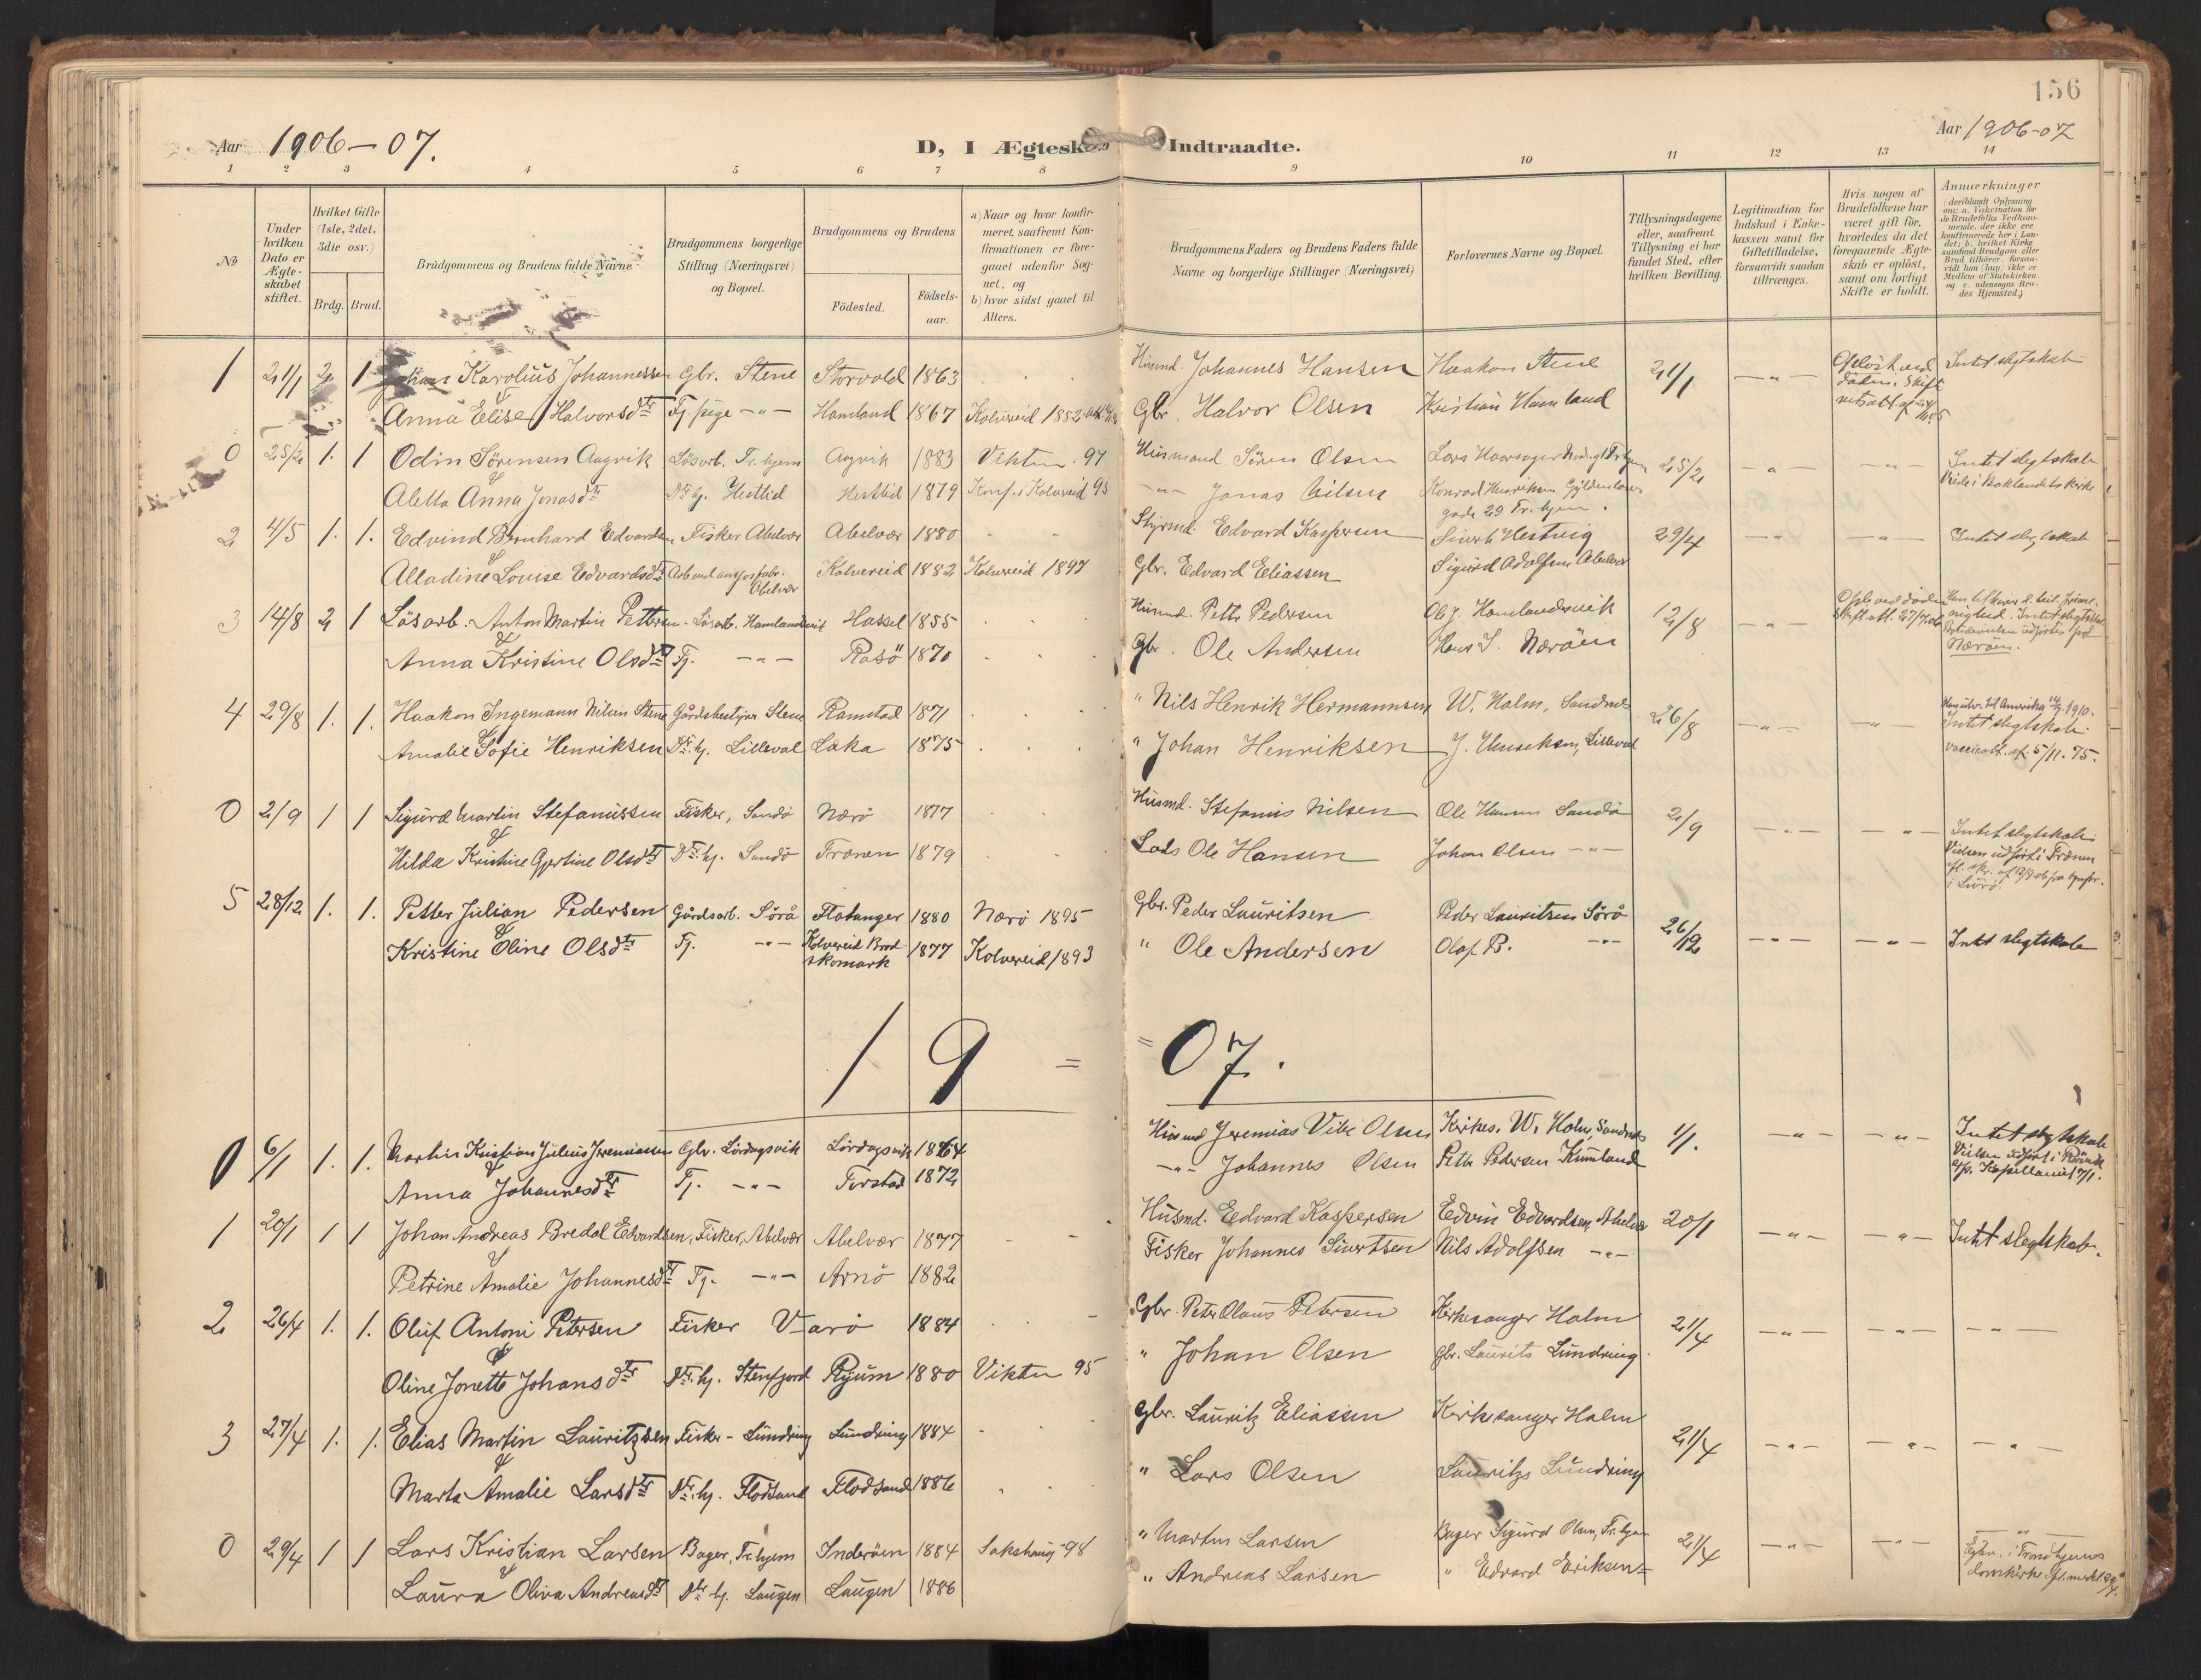 156
Aar 1906-07.
D, I Ægteskab Indtraadte.
Aar 1906-07
1 2 3 4 5 6 7 8 9 10 11 12 13 14
No
Under hvilken Dato er Ægteskabet stiftet.
Hvilket Gifte (1ste, 2det, 3die osv.)
Brdg. Brud.
Brudgommens og Brudens fulde Navne
Brudgommens borgerlige Stilling (Næringsvei) og Bopæl.
Brudgommens og Brudens
Födested.
Födsels-aar.
a) Naar og hvor konfirmeret, saafremt Konfirmationen er foregaaet udenfor Sognet, og
b) hvor sidst gaaet til Alters.
Brudgommens Faders og Brudens Faders fulde Navne og borgerlige Stillinger (Næringsvei)
Forlovernes Navne og Bopæl.
Tillysningsdagene eller, saafremt Tillysning ei har fundet Sted, efter hvilken Bevilling.
Legitimation for Indskud i Enkekassen samt for Giftetilladelse, forsaavidt saadan tiltrænges.
Hvis nogen af Brudefolkene har været gift för, hvorledes da det foregaaende Ægteskab er oplöst, samt om lovligt Skifte er holdt.
Anmærkninger
(deriblandt Oplysning om: a. Vakcination for de Brudefolks Vedkommende, der ikke ere konfirmerede her i Landet; b. hvilket Kirkesamfund Brudgom eller Brud tilhører, forsaavidt han (hun) ikke er Medlem af Statskirken, og c. udensogns Brudes Hjemsted.)
1 21/1 2 1 Johan Karolius Johannessen Gbr. Stene Storvold 1863 Husmd. Johannes Hansen Haakon Stene 21/1 Intet slegtskab
Anna Elise Halvorsdtr Tj.pige -"- Hamland 1867 Kolvereid 1882 Gbr. Halvor Olsen Kristian Hamland
0 25/2 1. 1 Odin Sörensen Aagvik Lösarb. Tr.hjem Aagvik 1883 Vikten 97 Husmand Sören Olsen 25/2 -"- -"- Intet slegtskab
Aletta Anna Jonasdtr Dtr hj. Hestlid Hestlid 1879 Konf. i Kolvereid 95 -"- Jonas Nilsen Konrad Henriksen Gyldenlöves
gade 29 Tr.hjem.
Viede i Baklandets Kirke
2 4/5 1. 1. Edvind Bernhard Edvardsen Fisker Abelvær Abelvær 1880 Styrmd. Edvard Kaspersen Sivert Hestvig 29/4 -"- -"- Intet slegtskab
Alladine Louise Edvardsdtr Abelvær Kolvereid 1882 Kolvereid 1897 Gbr. Edvard Eliassen Sigurd Adolfsen Abelvær
3 14/8 2 1 Lösarb. Anton Martin Pettersen Lösarb. Hamlandsvik Hassel 1855 Husmd. Petter Pedersen Ol. J. Hamlandsvik 12/8 -"-
Anna Kristine Olsdtr Tj. -"- Rosö 1870 Gbr. Ole Andersen Hans S. Næröen
Næröen.
4 29/8 1. 1. Haakon Ingemann Nilsen Stene Gårdsbestyrer Stene Ramstad 1871 " Nils Henrik Hermannsen W. Holm, Sandnes 26/8 -"- -"- Intet slegtskab
Amalie Sofie Henriksen Dtr. hj. Lilleval Laka 1875 " Johan Henriksen J. Henriksen, Lilleval vaccinatt. af 5/11.75.
0 2/9 1 1 Sigurd Martin Stefanussen Fisker, Sandö Nærö 1877 Husmd. Stefanus Nilsen Ole Hansen Sandö 2/9 -"- -"- Intet slegtskab
Hilda Kristine Gjertine Olsdtr Dtr. hj. Sandö Trænen 1879 Lods Ole Hansen Johan Olsen -"- Vielsen udfört i Trænen
5 28/12 1. 1. Petter Julian Pedersen Gårdsarb. Sörå Flatanger 1880 Nærö 1895 Gbr. Peder Lauritsen Peder Lauritsen Sörå 26/12 -"- -"- Intet slegtskab
Kristine Oline Olsdtr Tj. -"- Kolvereid Brod-skomark 1877 Kolvereid 1893 " Ole Andersen Olaf P. -"-
19 = = 07.
0 6/1 1. 1. Martin Kristian Julius Jeremiassen Gbr. Lördagsvik Lördagsvik 1864 Husmd Jeremias Vibe Olsen Kirkes. W. Holm, Sandnes 1/1. -"- -"- Intet slegtskab
Anna Johannesdtr Tj. -"- Torstad 1872 -"- Johannes Olsen Petter Pedersen
1 20/1 1 1 Johan Andreas Bredal Edvardsen, Fisker, Abelvær Abelvær 1877 Husmd. Edvard Kaspersen Edvin Edvardsen Abelvær 20/1 -"- -"- Intet slegtskab.
Petrine Amalie Johannesdtr Tj. -"- Arnö 1882 Fisker Johannes Sivertsen Nils Adolfsen -"-
2 26/4 1. 1. Oluf Antoni Petersen Fisker Varö 1884 Gbr. Peter Olaus Petersen Kirkesanger Holm 21/4 -"- -"- -"-
Oline Jonette Johansdtr Dtr. hj. Stenfjord Ryum 1880 Vikten 95 " Johan Olsen Gbr. Laurits Lundring.
3 27/4 1. 1. Elias Martin Lauritzsen Fisker - Lundring Lundring 1884 Gbr. Lauritz Eliassen Kirkesanger Holm 21/4 -"- -"- -"-
Marta Amalie Larsdtr Dtr. hj. Flodsand Flodsand 1886 " Lars Olsen Lauritzs Lundring
0 29/4 1 1 Lars Kristian Larsen Bager, Tr.hjem Inderöen 1884 Sakshaug 98 " Martin Larsen Bager Sigurd Olsen, Tr.hjem 21/4 -"- -"- -"-
Laura Oliva Andreasdtr Dtr hj. Laugen Laugen 1886 " Andreas Larsen " Edvard Eriksen -"-